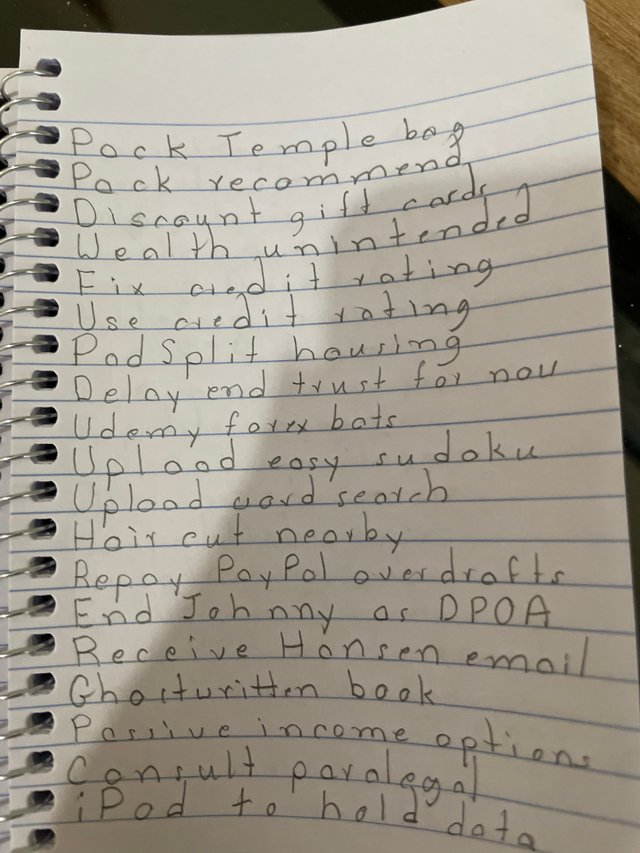 Pack Temple bag
Pack recommend
Discount gift cards
Wealth unintended
Fix credit rating
Use credit rating
PadSplit housing
Delay end trust for now
Udemy forex bots
Upload easy sudoku
Upload word search
Hair cut nearby
Repay PayPal overdrafts
End Johnny as DPOA
Receive Hansen email
Ghostwritten book
Passive income options
Consult paralegal
iPod to hold data